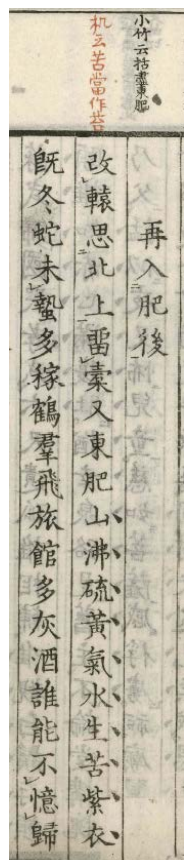 小竹云括盡東肥
机云苦當作苔
再入肥後
改轅思北上畱橐又東肥山沸硫黃氣水生苦紫衣
既冬蛇未蟄多稼鶴羣飛旅館多灰酒誰能不憶歸